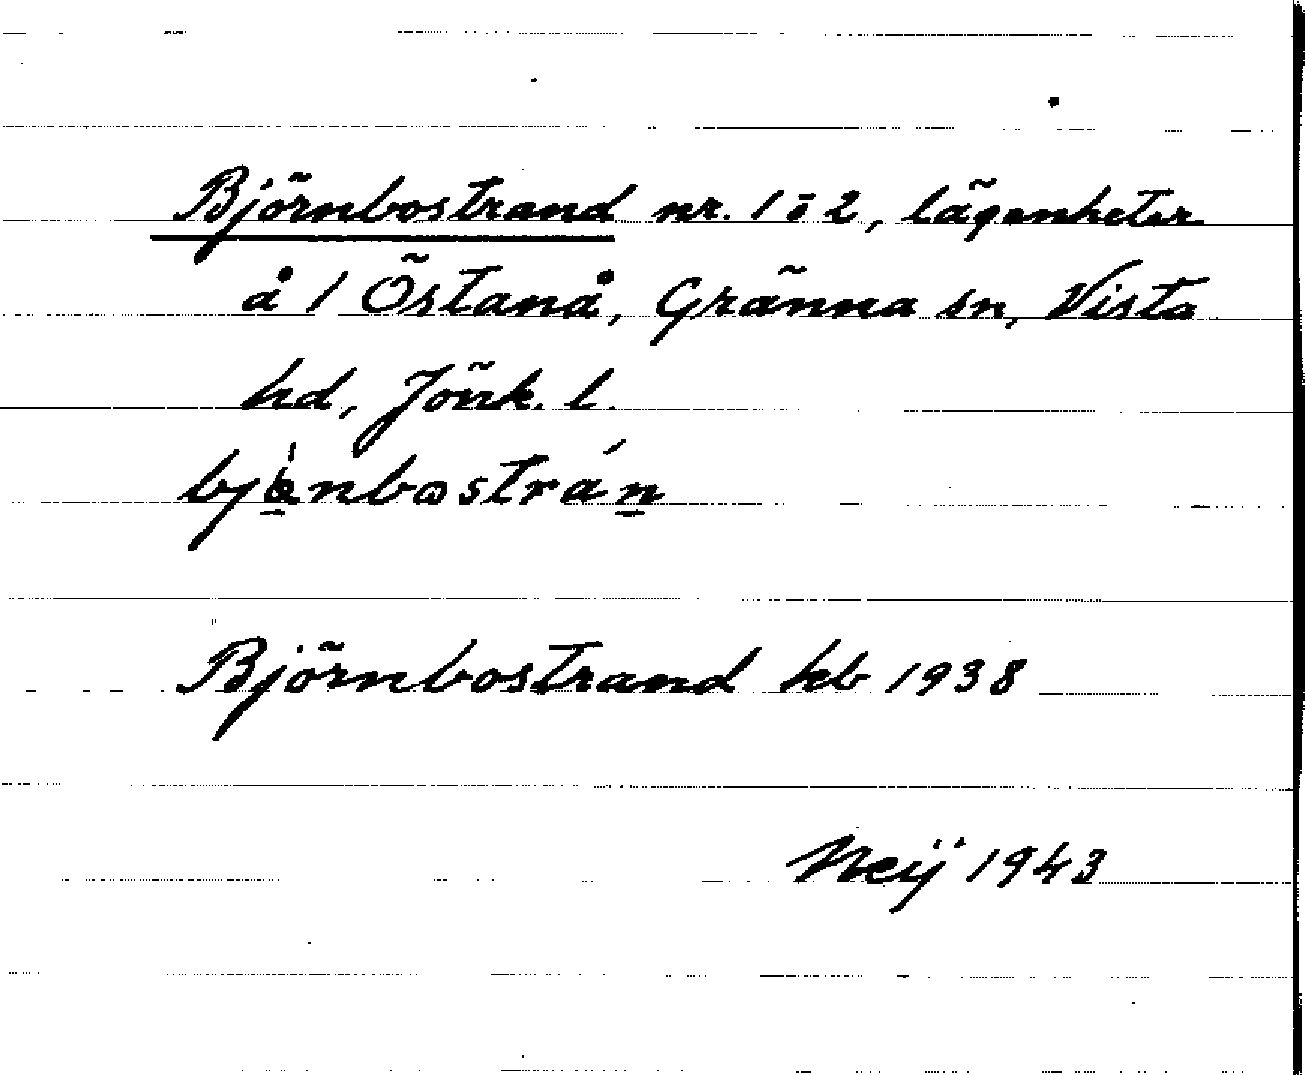 Björnbostrand nr. 1 o 2, lägenheter
å 1 Östanå, Gränna sn, Vista
hd, Jönk. l.
Björnbostrand kb 1938
Neij 1943